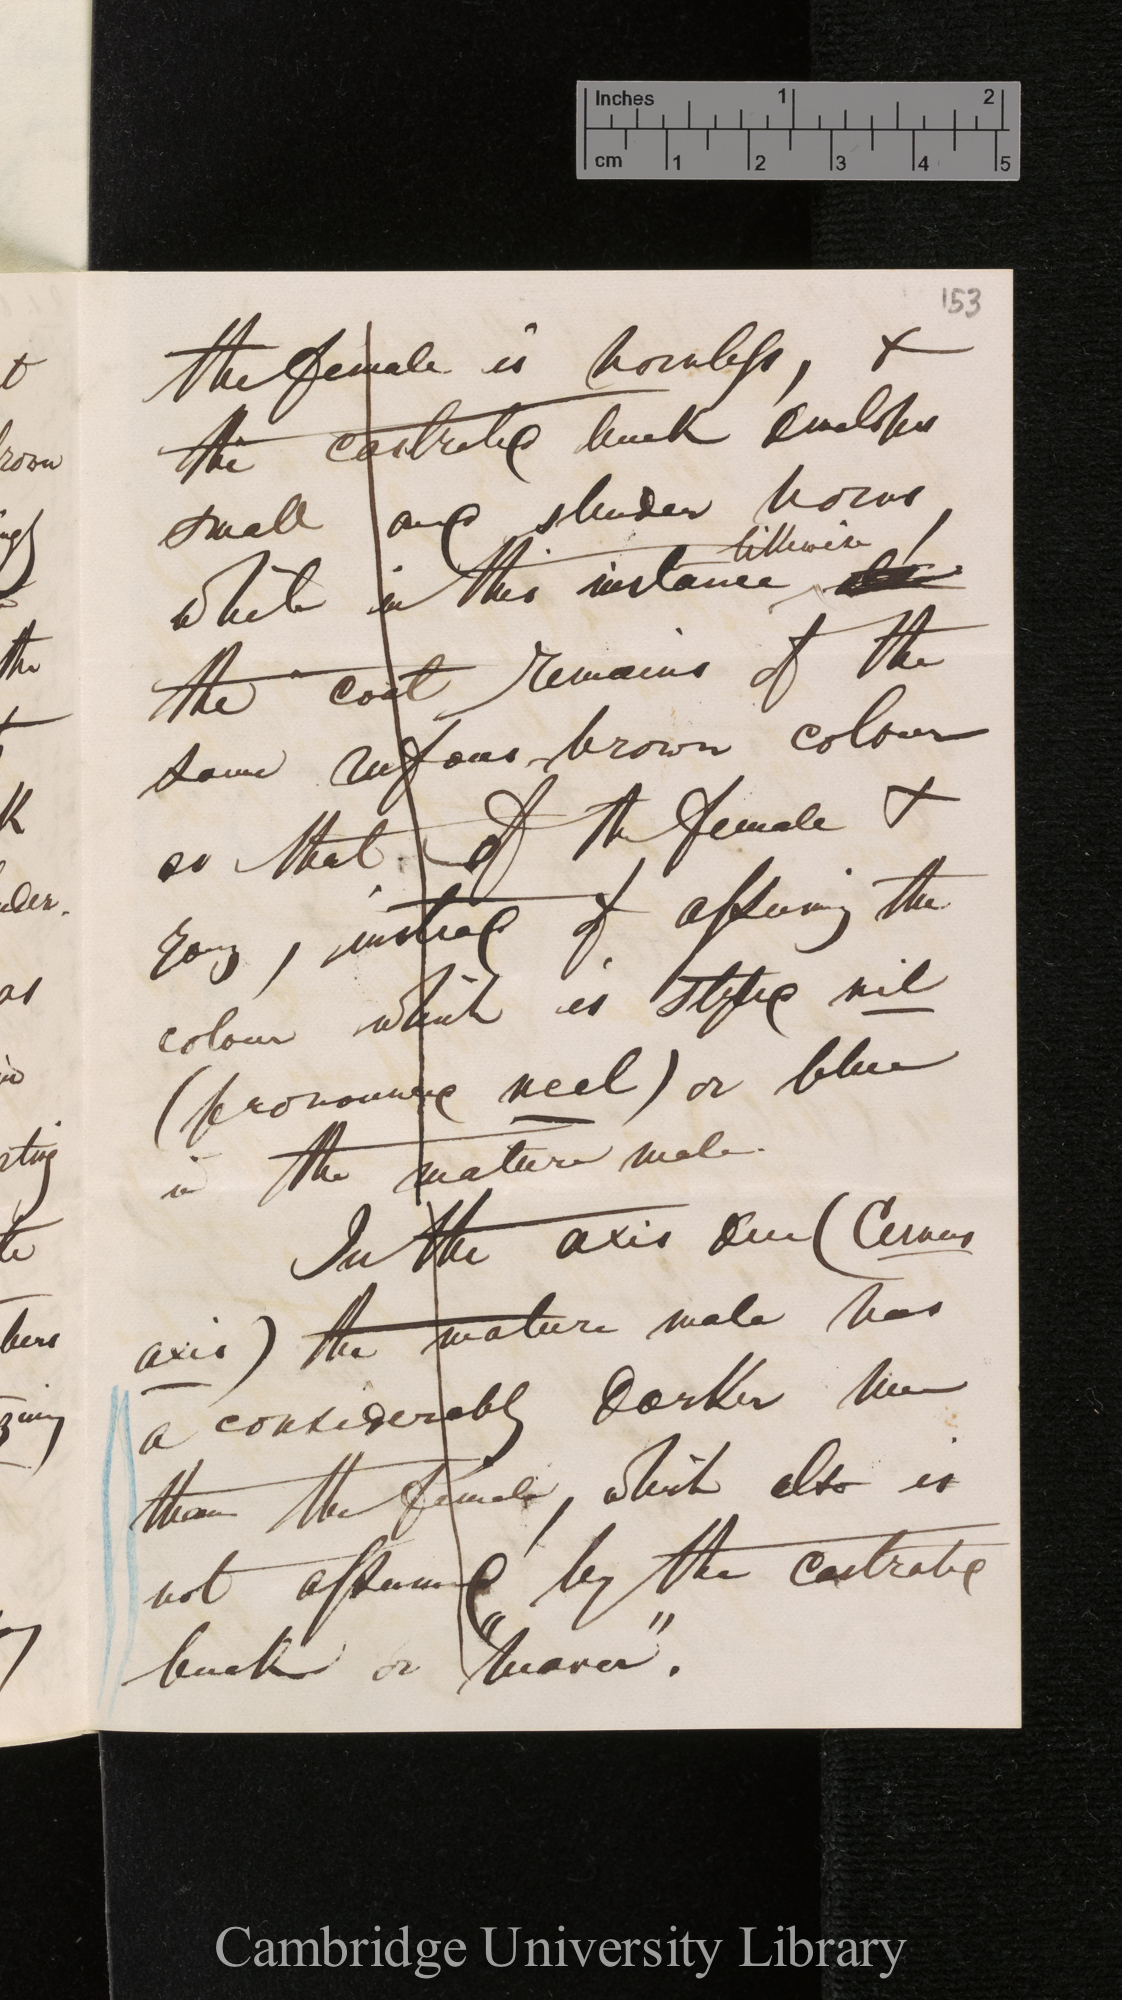 Inches 1 2
cm 1 2 3 4 5
153
the female is hornless, &
the castrated buck developes
small and slender horns,
while in this instance likewise
the coat remains of the
same rufous-brown colour
as that of the female &
young, instead of assuming the
colour which is styled nil
(pronounced neel) or blue
in the mature male.
In the axis deer (Cervus
axis) the mature male has
a considerably darker hue
than the female, which also is
not assumed by the castrated
buck or "heaver".
Cambridge University Library